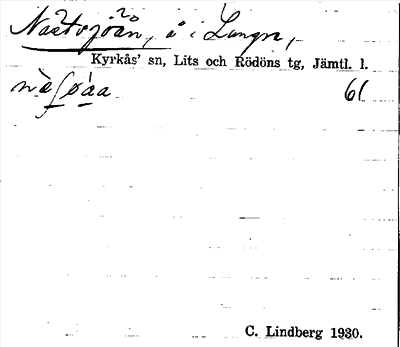 Nästvjöån, å i Lungre,
Kyrkås' sn, Lits och Rödöns tg, Jämtl. l.
61
C. Lindberg 1930.